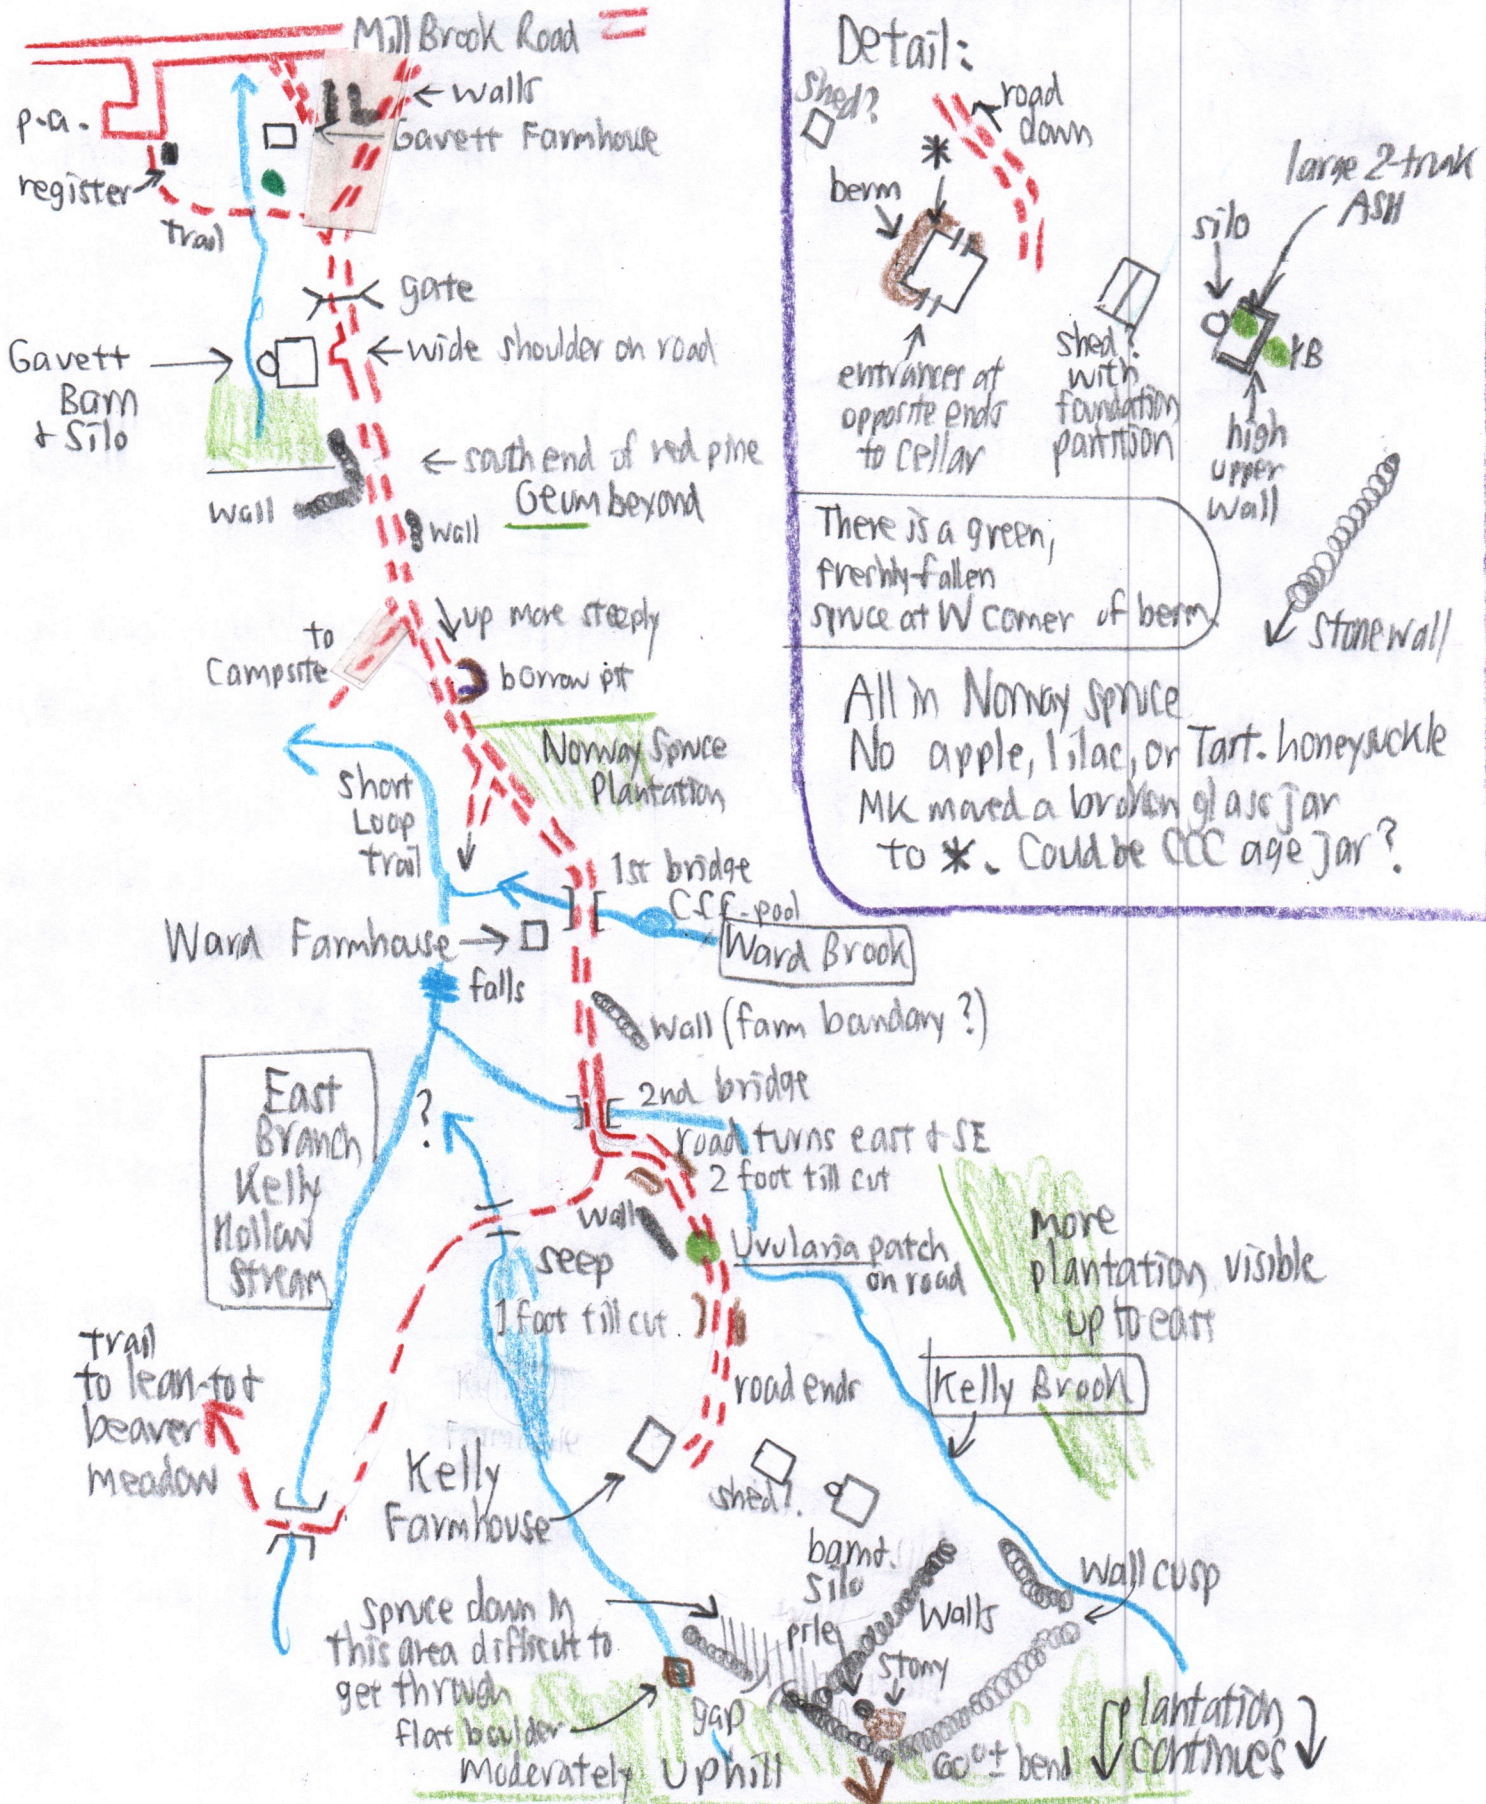 Mill Brook Road
p.a.
register
trail
← walls
Gavett Farmhouse
gate
wide shoulder on road
Gavett
Barn
+ Silo
wall
← south end of red pine
Geum beyond
wall
to
Campsite
up more steeply
borrow pit
Norway Spruce
Plantation
Short
Loop
trail
1st bridge
C.f.f. pool
Ward Brook
Ward Farmhouse
falls
wall (farm boundary?)
East
Branch
Kelly
Hollow
Stream
?
2nd bridge
road turns east + SE
2 foot till cut
wall
Uvularia patch
on road
seep
1 foot till cut
more
plantation visible
up to east
trail
to lean-to +
beaver
meadow
road ends
Kelly Brook
Kelly
Farmhouse
shed?
barn +
silo
Walls
Wall cusp
spruce down in
this area difficult to
get through
pile
stony
flat boulder
gap
Moderately Uphill
60°± bend
plantation
continues
Detail:
shed?
road
down
*
berm
large 2-trunk
ASH
silo
YB
entrances at
opposite ends
to cellar
shed?
with
foundation
partition
high
upper
wall
stonewall
There is a green,
freshly-fallen
spruce at W corner of berm.
All in Norway spruce
No apple, lilac, or Tart. honeysuckle
MK moved a broken glass jar
to *. Could be CCC age jar?